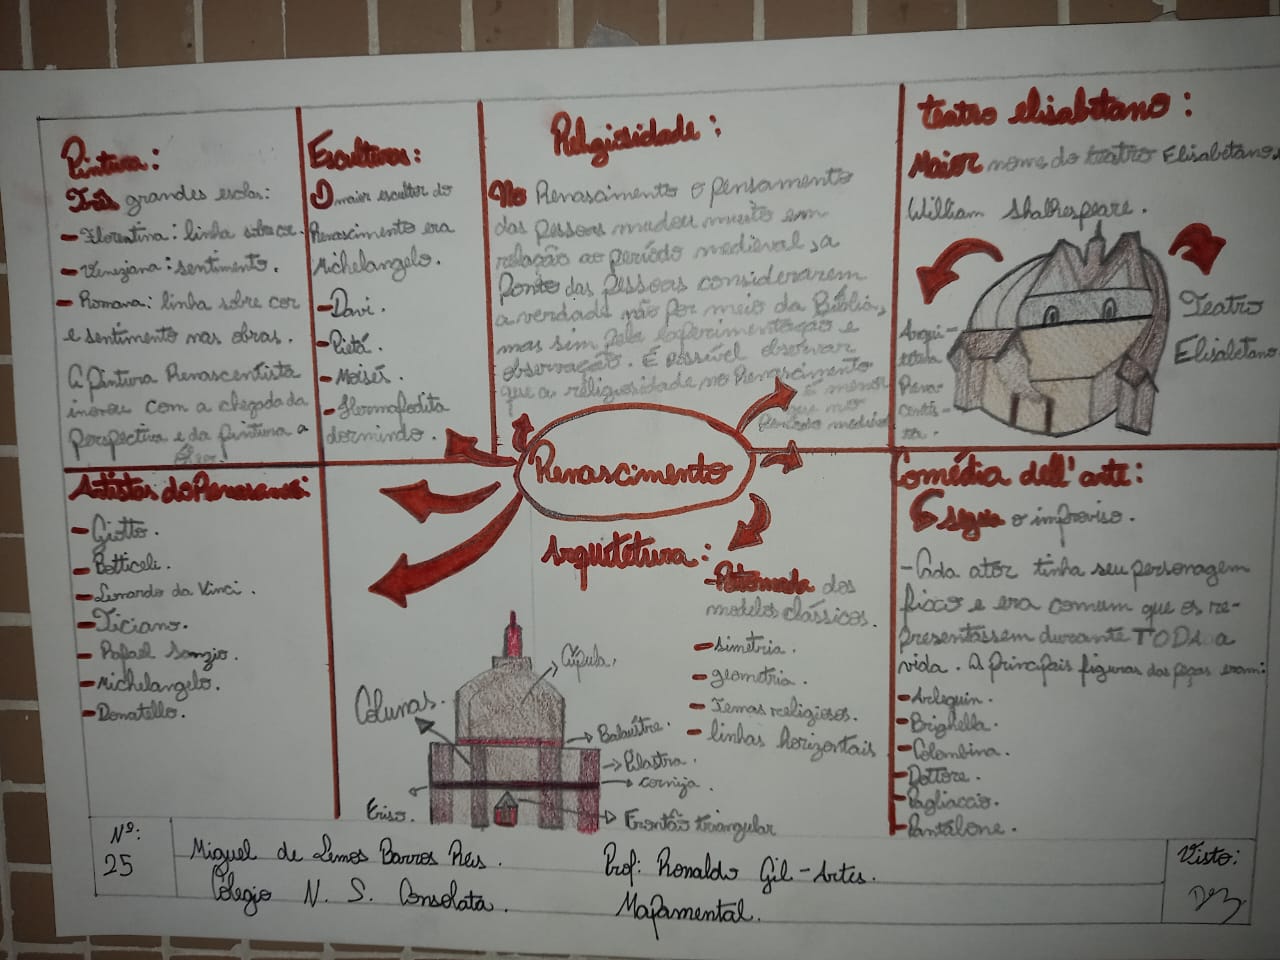 Pintura:
Três grandes escolas:
- Florentina: linha sobre cor.
- Veneziana: sentimento.
- Romana: linha sobre cor
e sentimento nas obras.
A pintura Renascentista
inovou com a chegada da
perspectiva e da pintura a
óleo.
Escultura:
O maior escultor do
Renascimento era
Michelangelo.
- Davi.
- Pietá.
- Moisés.
- Hermafodita
dormindo.
Religiosidade:
No Renascimento o pensamento
das pessoas mudou muito em
relação ao período medieval, a
ponto das pessoas considerarem
a verdade não por meio da Bíblia,
mas sim pela experimentação e
observação. É possível observar
que a religiosidade no Renascimento
é menor
que no
período medieval
teatro elisabetano:
Maior nome do teatro Elisabetano,
William Shakhespeare.
Arqui-
tetura
Rena-
centis-
ta.
Teatro
Elisabetano
Renascimento
Artistas do Renascimen:
- Giotto.
- Botticeli.
- Leonardo da Vinci.
- Ticiano.
- Rafael Sanzio.
- Michelangelo.
- Donatello.
Arquitetura:
- Retomada dos
modelos clássicos.
- simetria.
- geometria.
- Temas religiosos.
- linhas horizontais
Cúpula.
Colunas.
Balaústre.
Pilastra.
cornija.
Friso.
Frontão triangular
Comédia dell'arte:
o improviso.
- Cada ator tinha seu personagem
fixo e era comum que os re-
presentassem durante TODA a
vida. As principais figuras das peças eram:
- Arlequin.
- Brighella.
- Colombina.
- Dottore.
- Pagliaccio.
- Pantalone.
Nº:
25
Miguel de Lemos Barros Reis.
Colégio N. S. Consolata.
Prof: Ronaldo Gil - Artes.
Mapamental.
Visto: